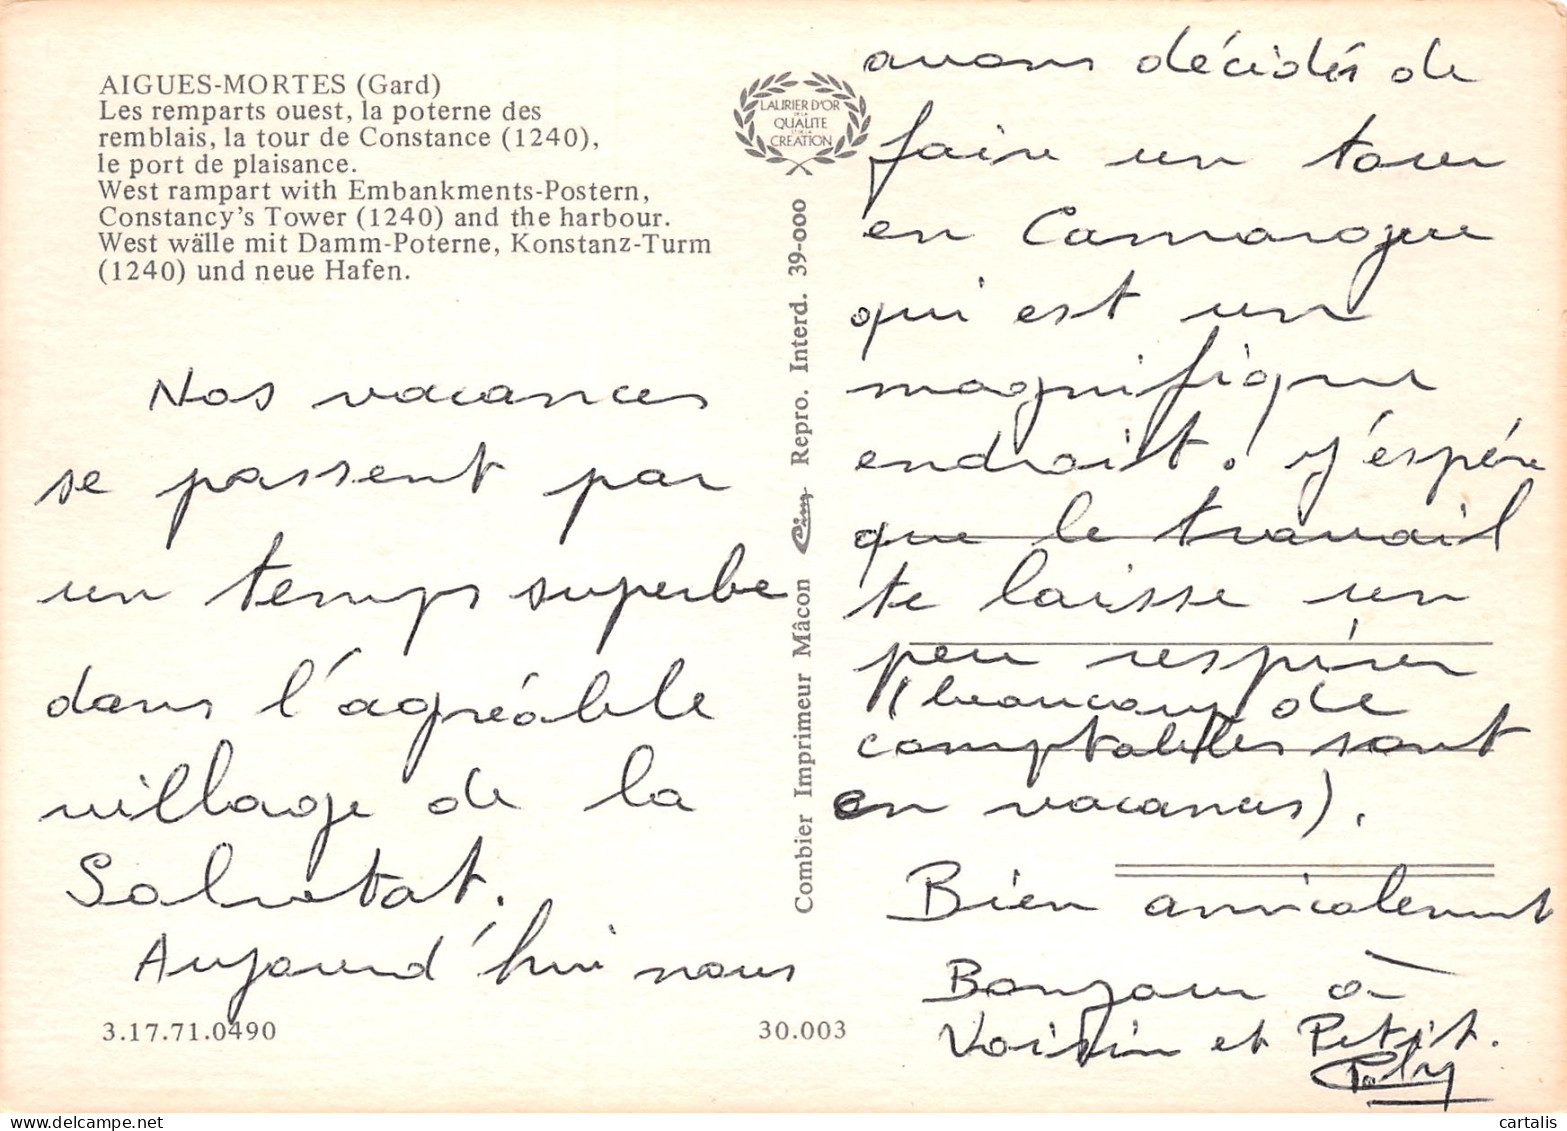 AIGUES-MORTES (Gard)
Les remparts ouest, la poterne des
remblais, la tour de Constance (1240),
le port de plaisance.
West rampart with Embankments-Postern,
Constancy's Tower (1240) and the harbour.
West wälle mit Damm-Poterne, Konstanz-Turm
(1240) und neue Hafen.
LAURIER D'OR
DE LA
QUALITE
ET DE LA
CREATION
Combier Imprimeur Mâcon Cim Repro. Interd. 39-000
Nos vacances
se passent par
un temps superbe
dans l'agréable
village de la
Salvetat.
Aujourd'hui nous
3.17.71.0490
30.003
avons décidés de
faire un tour
en Camargue
qui est un
magnifique
endroit. J'espére
que le travail
te laisse un
peu respirer
(beaucoup de
comptables sont
en vacances).
Bien amicalement
Bonjour à
Voisin et Petit.
Paty
cartalis